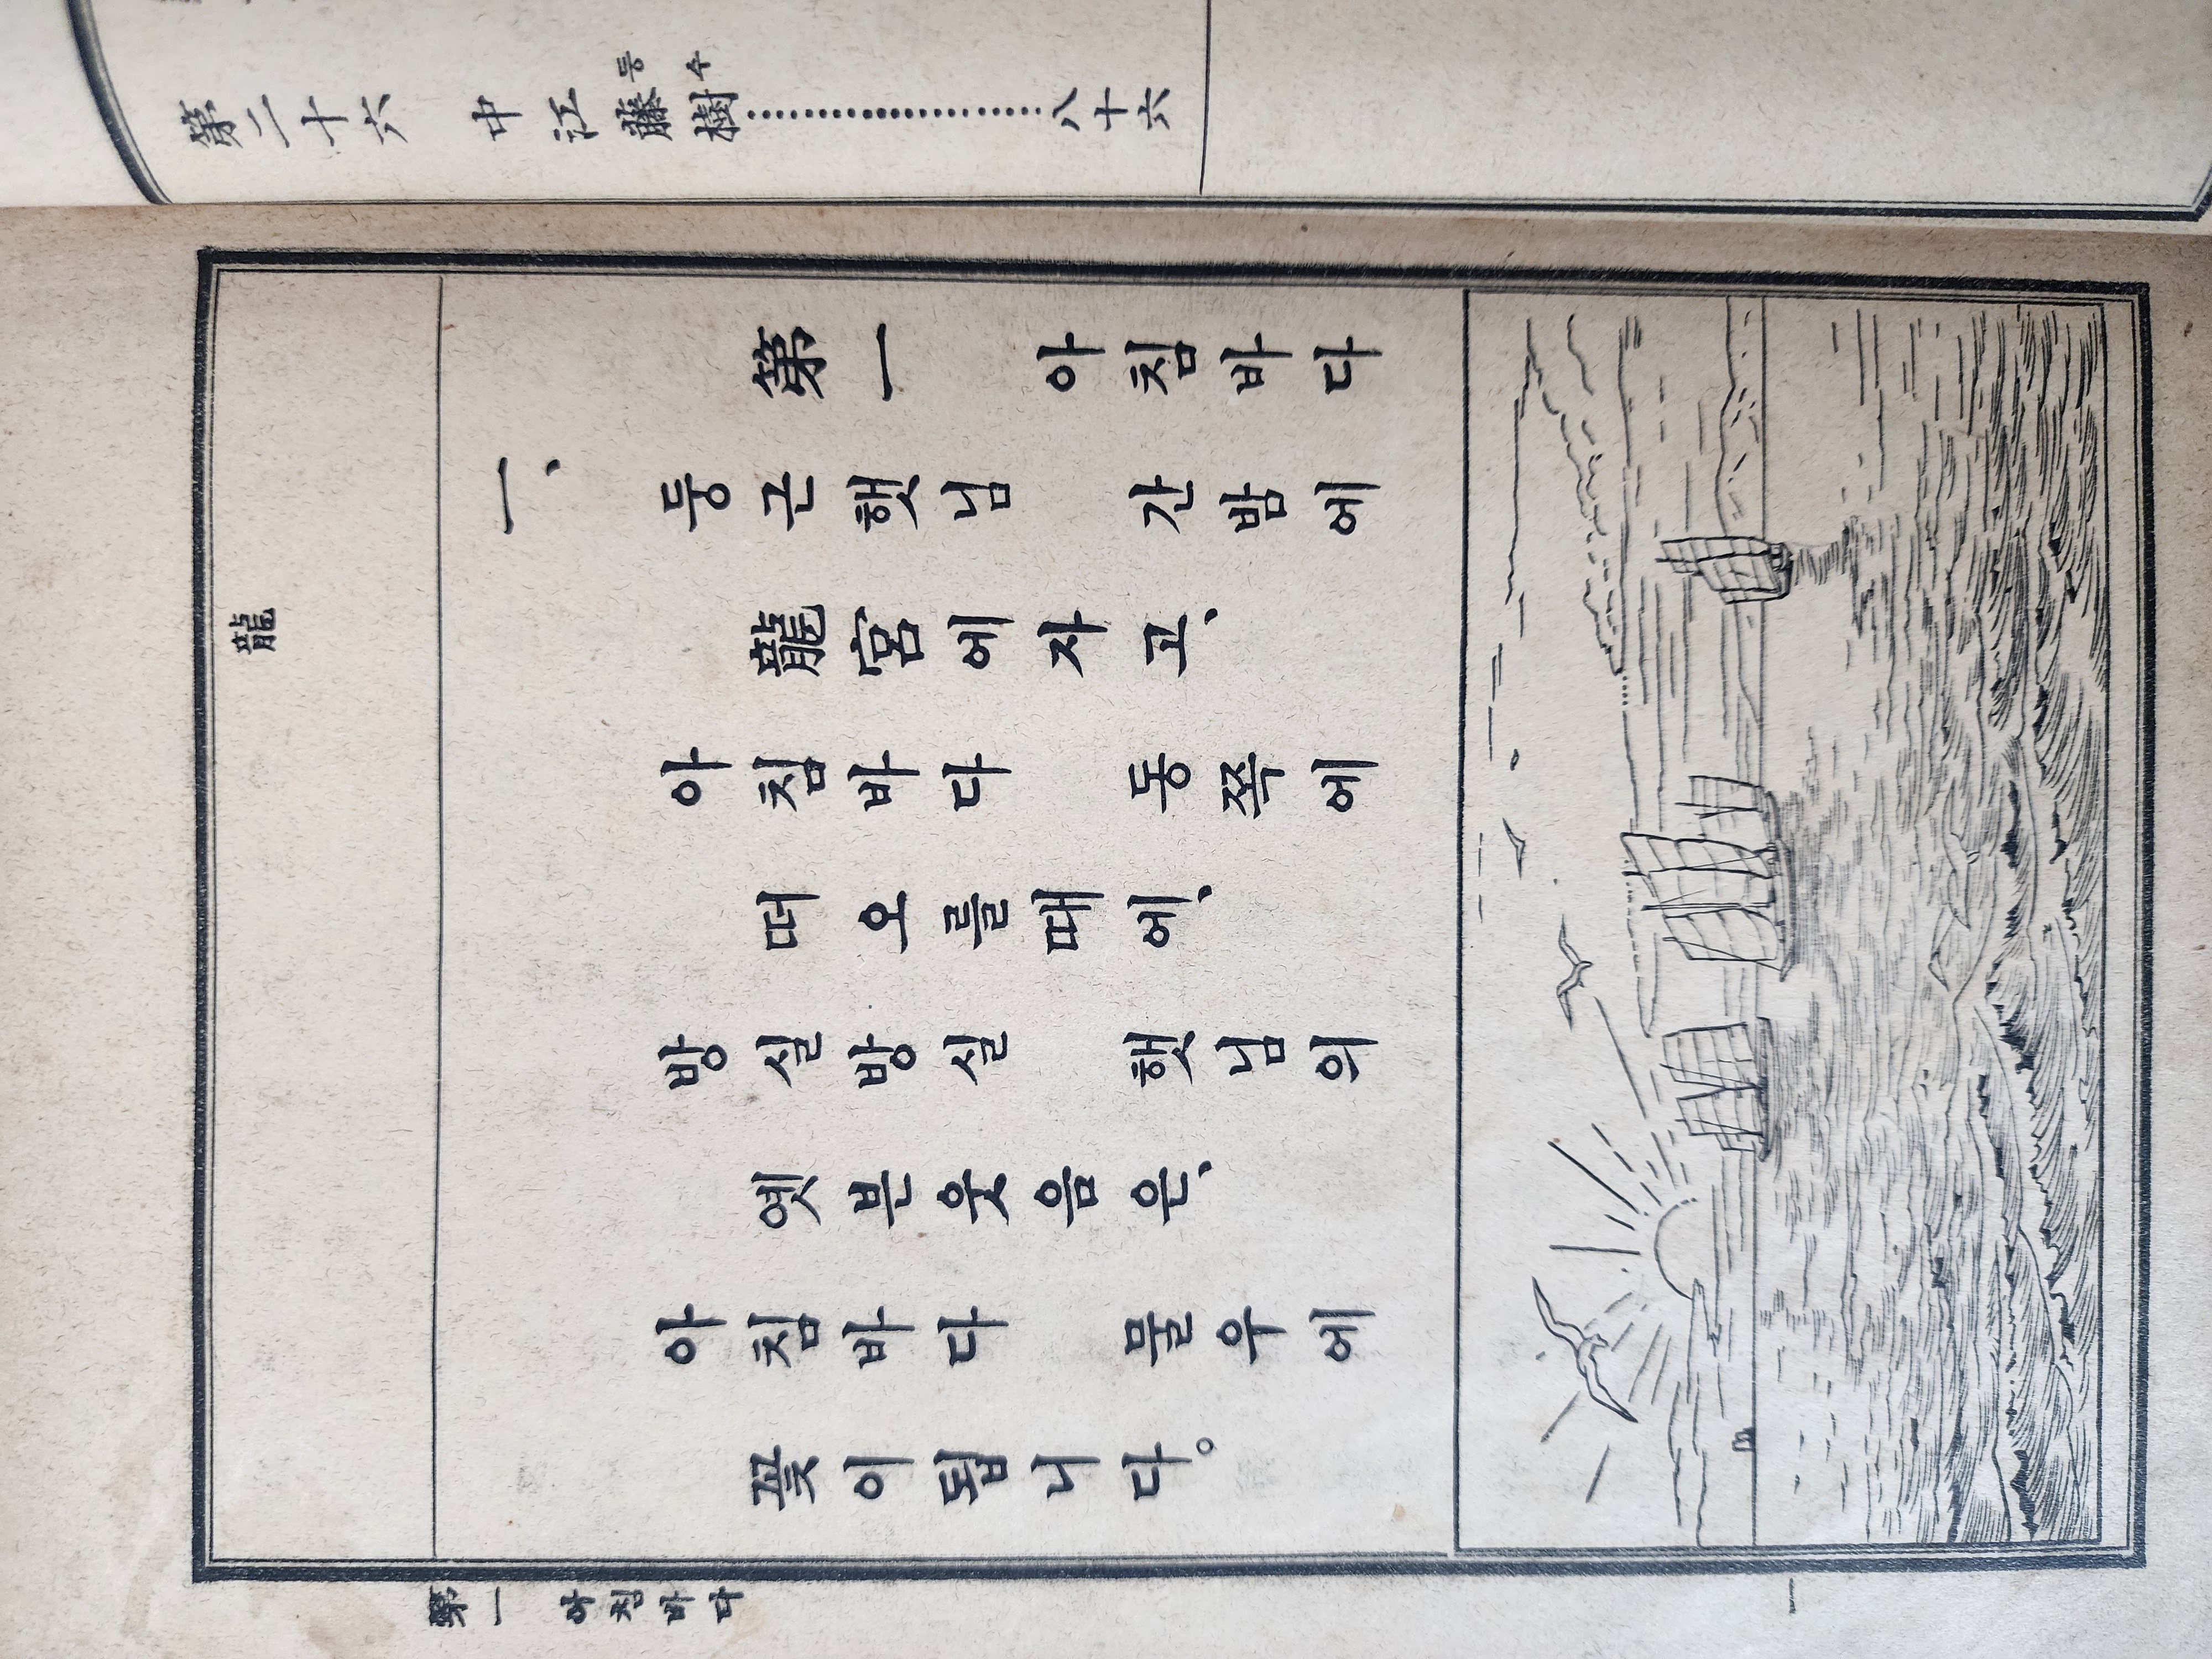 第二十六 中江藤樹……………………八十六
등수
龍
第一 아침바다
一、
둥근햇님 간밤에
龍宮에자고、
아침바다 동쪽에
떠오를때에、
방실방실 햇님의
옛분웃음은、
아침바다 물우에
꽃이됩니다。
第一 아침바다
一